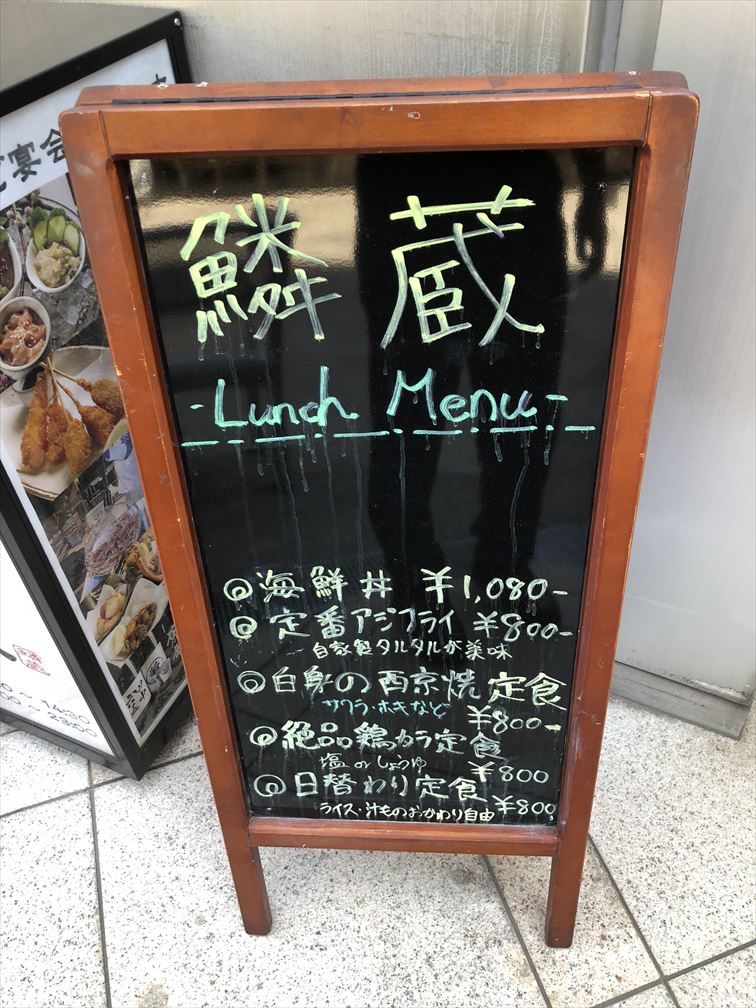 鱗蔵
-Lunch Menu-
◎海鮮丼 ¥1,080-
◎定番アジフライ ¥800-
自家製タルタルが美味
◎白身の西京焼定食
サワラ・ホキなど
¥800-
◎絶品鶏カラ定食
塩orしょうゆ
¥800
◎日替わり定食 ¥800
ライス・汁ものおかわり自由
宴会